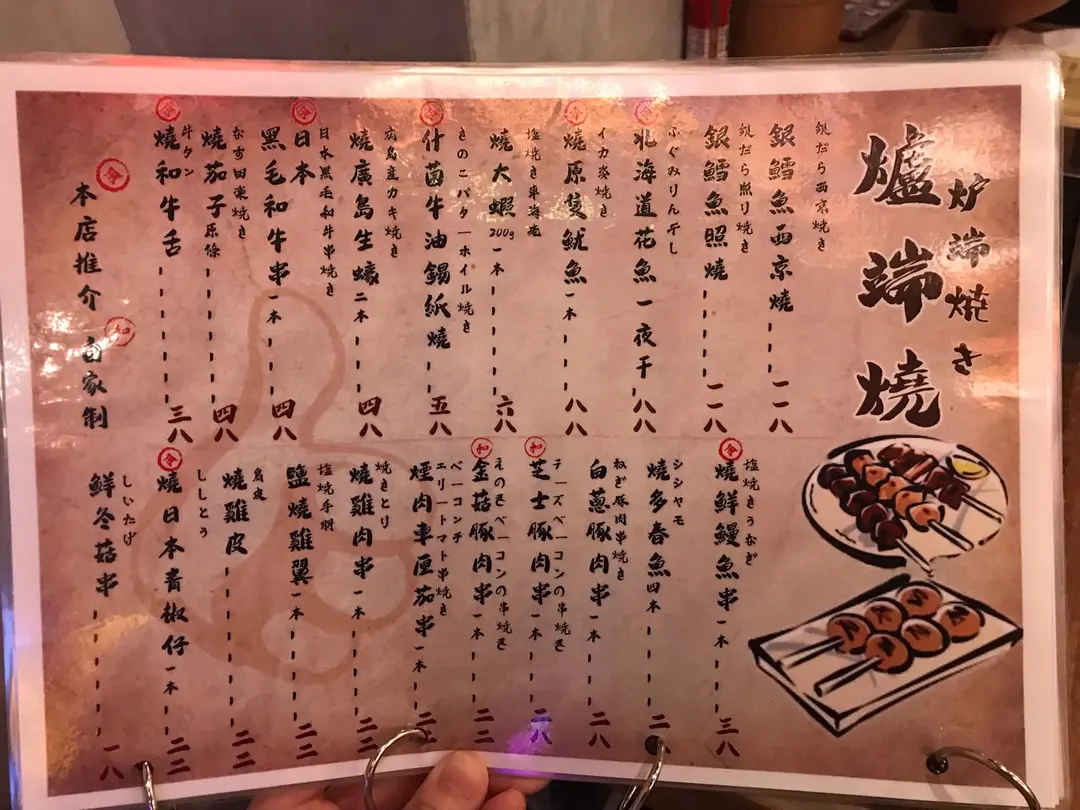 爐端燒
炉端焼き
銀だら西京焼き
銀鱈魚西京燒 一一八
銀だら照り焼き
銀鱈魚照燒 一一八
ふぐみりん干し
北海道花魚一夜干 八八
イカ姿焼き
燒原隻魷魚一本 八八
塩焼き車海老
燒大蝦200g一本 六八
きのこバターホイル焼き
什菌牛油錫紙燒 五八
広島産カキ焼き
燒廣島生蠔二本 四八
日本黒毛和牛串焼き
日本
黑毛和牛串一本 四八
なす田楽焼き
燒茄子原條 四八
牛タン
燒和牛舌 三八
塩焼きうなぎ
燒鮮鰻魚串一本 三八
シシャモ
燒多春魚四本 二
ねぎ豚肉串焼き
白蔥豚肉串一本 二八
チーズベーコンの串焼き
芝士豚肉串一本 二八
えのきベーコンの串焼き
金菇豚肉串一本 二二
ベーコンチ
エリートマト串焼き
煙肉車厘茄串一本 二二
焼きとり
燒雞肉串一本 二二
塩焼手羽
鹽燒雞翼一本 二二
鳥皮
燒雞皮 二二
ししとう
燒日本青椒仔一本 二二
しいたけ
鮮冬菇串 一八
本店推介
和 自家制